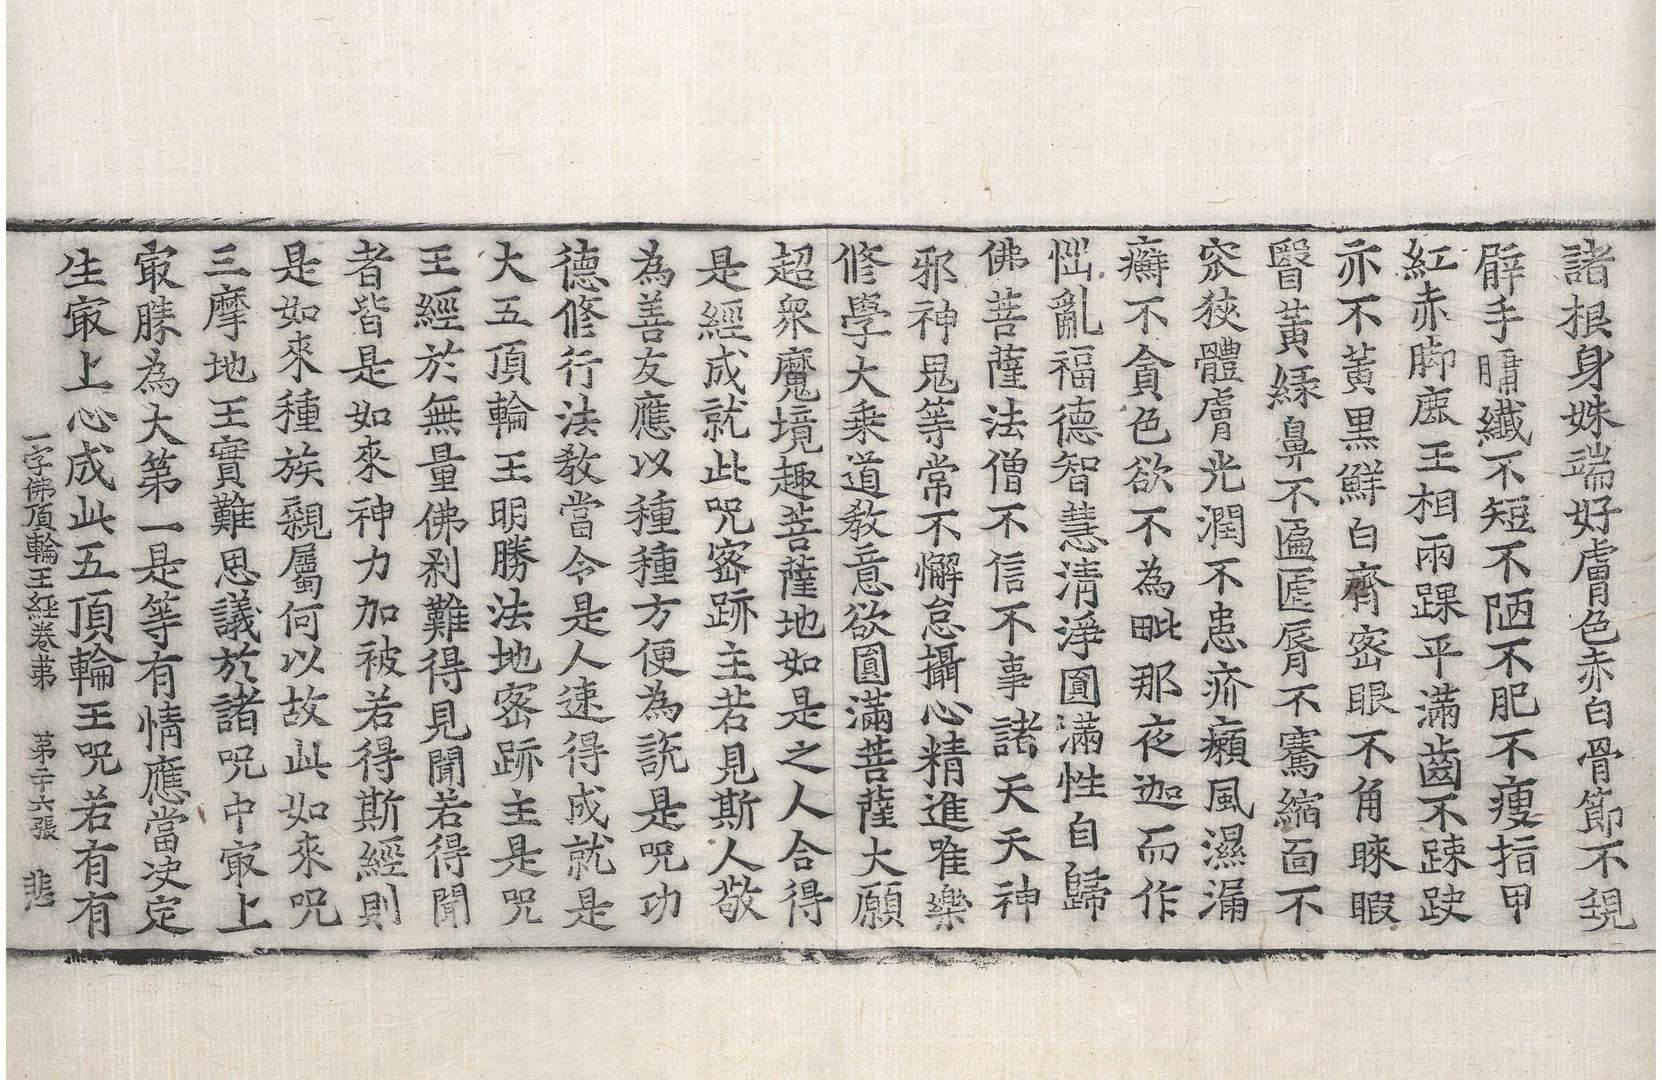 諸根身姝端好膚色赤白骨節不現
髀手𦟛纖不短不陋不肥不瘦指甲
紅赤脚鹿王相兩踝平滿齒不踈𧿒
亦不黃黒鮮白齊密眼不角睞睱
瞖黃緑鼻不匾㔸脣不騫縮面不
窊狹體膚光潤不患疥癩風濕漏
癬不貪色欲不為毗那夜迦而作
惱亂福德智慧清淨圓滿性自歸
佛菩薩法僧不信不事諸天天神
邪神鬼等常不懈怠攝心精進唯樂
修學大乘道教意欲圓滿菩薩大願
超衆魔境趣菩薩地如是之人合得
是經成就此呪密跡主若見斯人敬
為善友應以種種方便為說是呪功
德修行法教當令是人速得成就是
大五頂輪王明勝法地密跡主是呪
王經於無量佛剎難得見聞若得聞
者皆是如來神力加被若得斯經則
是如來種族親屬何以故此如來呪
三摩地王實難思議於諸呪中㝡上
㝡勝為大第一是等有情應當決定
生㝡上心成此五頂輪王呪若有有
一字佛頂輪王經卷苐　苐二十六張　悲